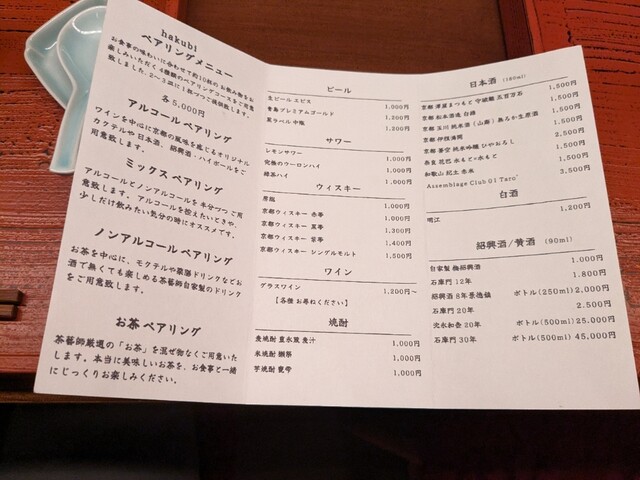 hakubi
ペアリングメニュー
お食事の味わいに合わせて約10杯のお飲み物をお
楽しみいただく4種類のペアリングコースをご用意
致しました。2〜3皿に1杯づつご提供致します。
各5,000円
アルコールペアリング
ワインを中心に京都の風味を感じるオリジナル
カクテルや日本酒、紹興酒・ハイボールをご
用意致します。
ミックスペアリング
アルコールとノンアルコールを半分づつご用
意致します。アルコールを控えたいときや、
少しだけ飲みたい気分の時にオススメです。
ノンアルコールペアリング
お茶を中心に、モクテルや薬膳ドリンクなどお
酒で無くても楽しめる茶藝師自家製のドリンク
をご用意致します。
お茶ペアリング
茶藝師厳選の「お茶」を混ぜ物なくご用意いた
します。本当に美味しいお茶を、お食事と一緒
にじっくりお楽しみください。
ビール
生ビール エビス 1,000円
青島プレミアムゴールド 1,200円
黒ラベル 中瓶 1,200円
サワー
レモンサワー 1,000円
究極のウーロンハイ 1,000円
緑茶ハイ 1,000円
ウィスキー
1,000円
京都ウィスキー 赤帯 1,000円
京都ウィスキー 紫帯 1,300円
京都ウィスキー 黒帯 1,400円
京都ウィスキー シングルモルト 1,500円
ワイン
グラスワイン 1,200円〜
【各種 お尋ねください】
焼酎
麦焼酎 豊永蔵 麦汁 1,000円
米焼酎 獺祭 1,000円
芋焼酎 甕雫 1,000円
日本酒 (180ml)
京都 澤屋まつもと 守破離 五百万石 1,500円
京都 松本酒造 1,500円
京都 玉川 純米酒(山廃)無ろか生原酒 1,500円
京都 伊根満開 1,500円
京都 蒼空 純米吟醸 ひやおろし 2,500円
奈良 花巴 水もと×水もと 1,500円
和歌山 紀土 1,500円
Assemblage Club 01 Taro 3,500円
白酒
明江 1,200円
紹興酒/黄酒 (90ml)
自家製 紹興酒 1,000円
石庫門 12年 1,800円
紹興酒 8年景徳鎮 ボトル(250ml) 2,000円
石庫門 20年 2,500円
20年 ボトル(500ml) 25,000円
石庫門 30年 ボトル(500ml) 45,000円